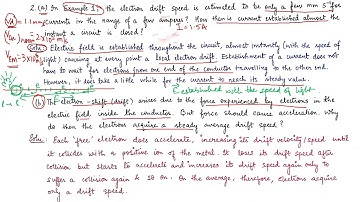 2. (a) In Example 3.1, the electron drift speed is estimated to be only a few mm s⁻¹ for
(Vd) = 1.1 mm/s currents in the range of a few amperes? How then is current established almost the
instant a circuit is closed? I = 1.5A
Soln: Electric field is established throughout the circuit, almost instantly (with the speed of
light) causing at every point a local electron drift. Establishment of a current does
not have to wait for electrons from one end of the conductor travelling to the other end.
However, it does take a little while for the current to reach its steady value.
established with the speed of light
(b) The electron drift arises due to the force experienced by electrons in the
electric field inside the conductor. But force should cause acceleration. Why
do then the electrons acquire a steady average drift speed?
Soln: Each 'free' electron does accelerate, increasing its drift velocity/speed until
it collides with a positive ion of the metal. It loses its drift speed after
collision but starts to accelerate and increases its drift speed again only to
suffer a collision again & so on. On the average, therefore, electrons acquire
only a drift speed.